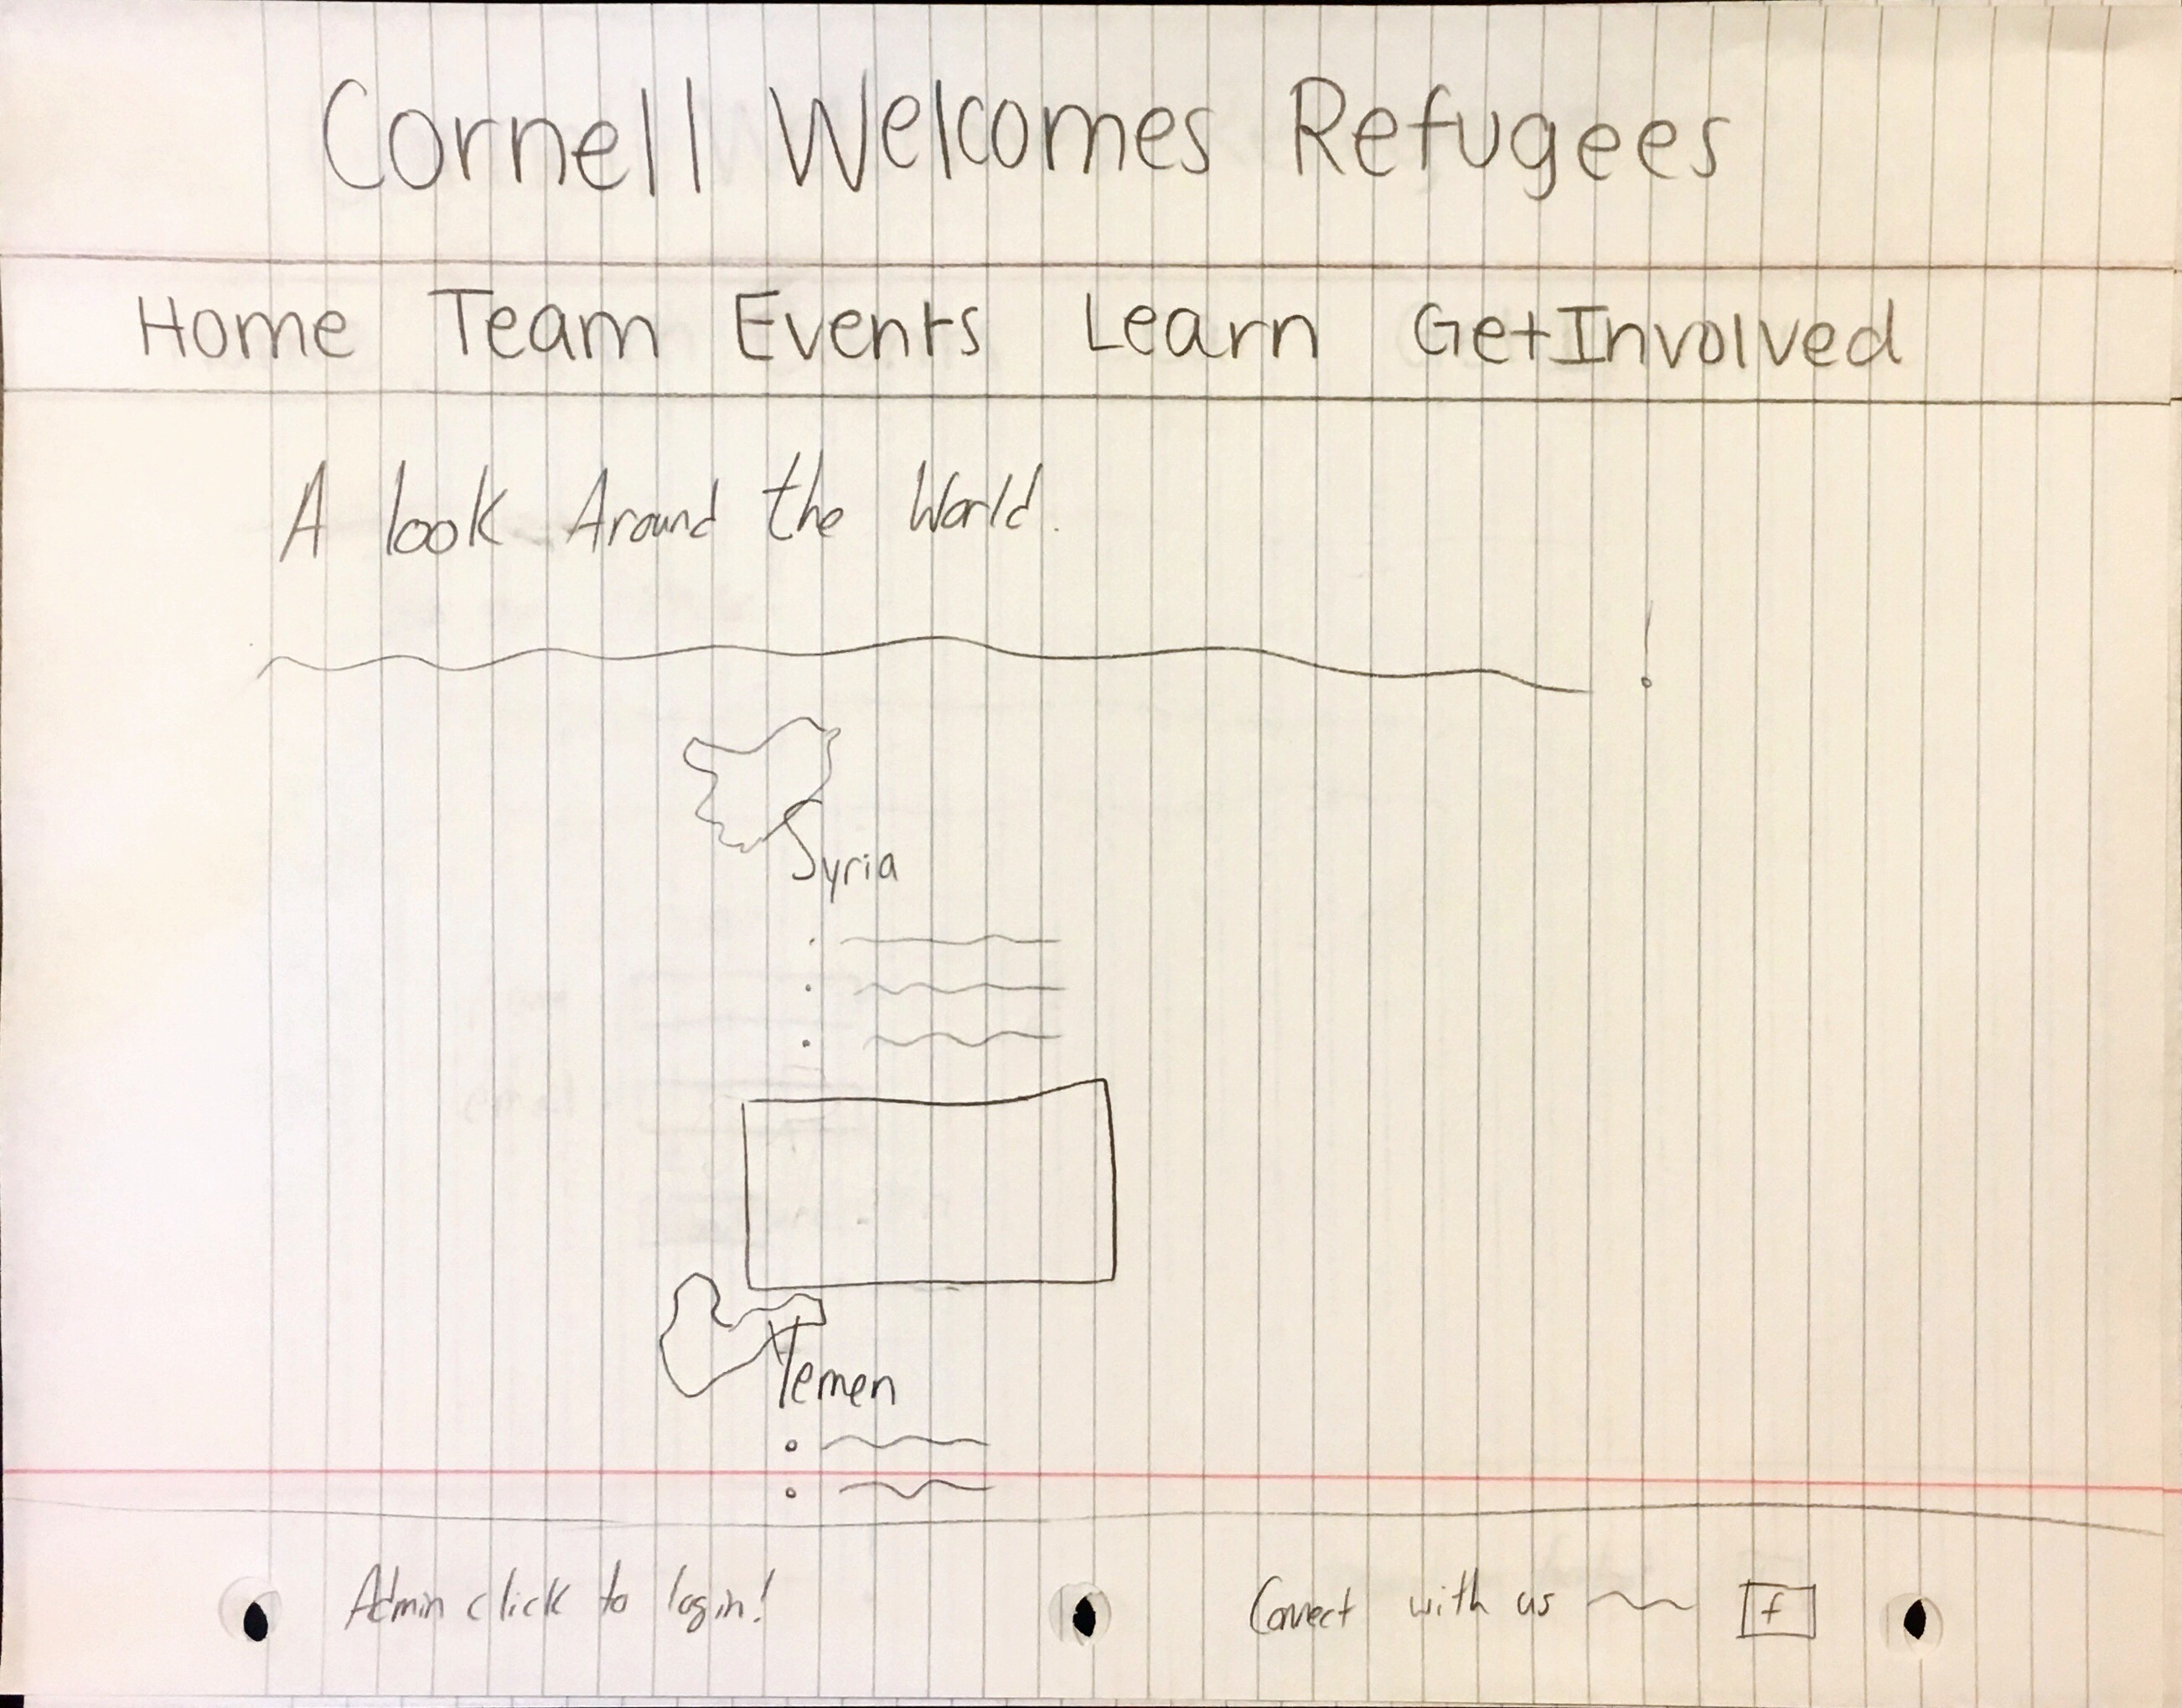 Cornell Welcomes Refugees
Home Team Events Learn Get Involved
A look Around the World.
Syria
Yemen
Admin click to login!
Connect with us f